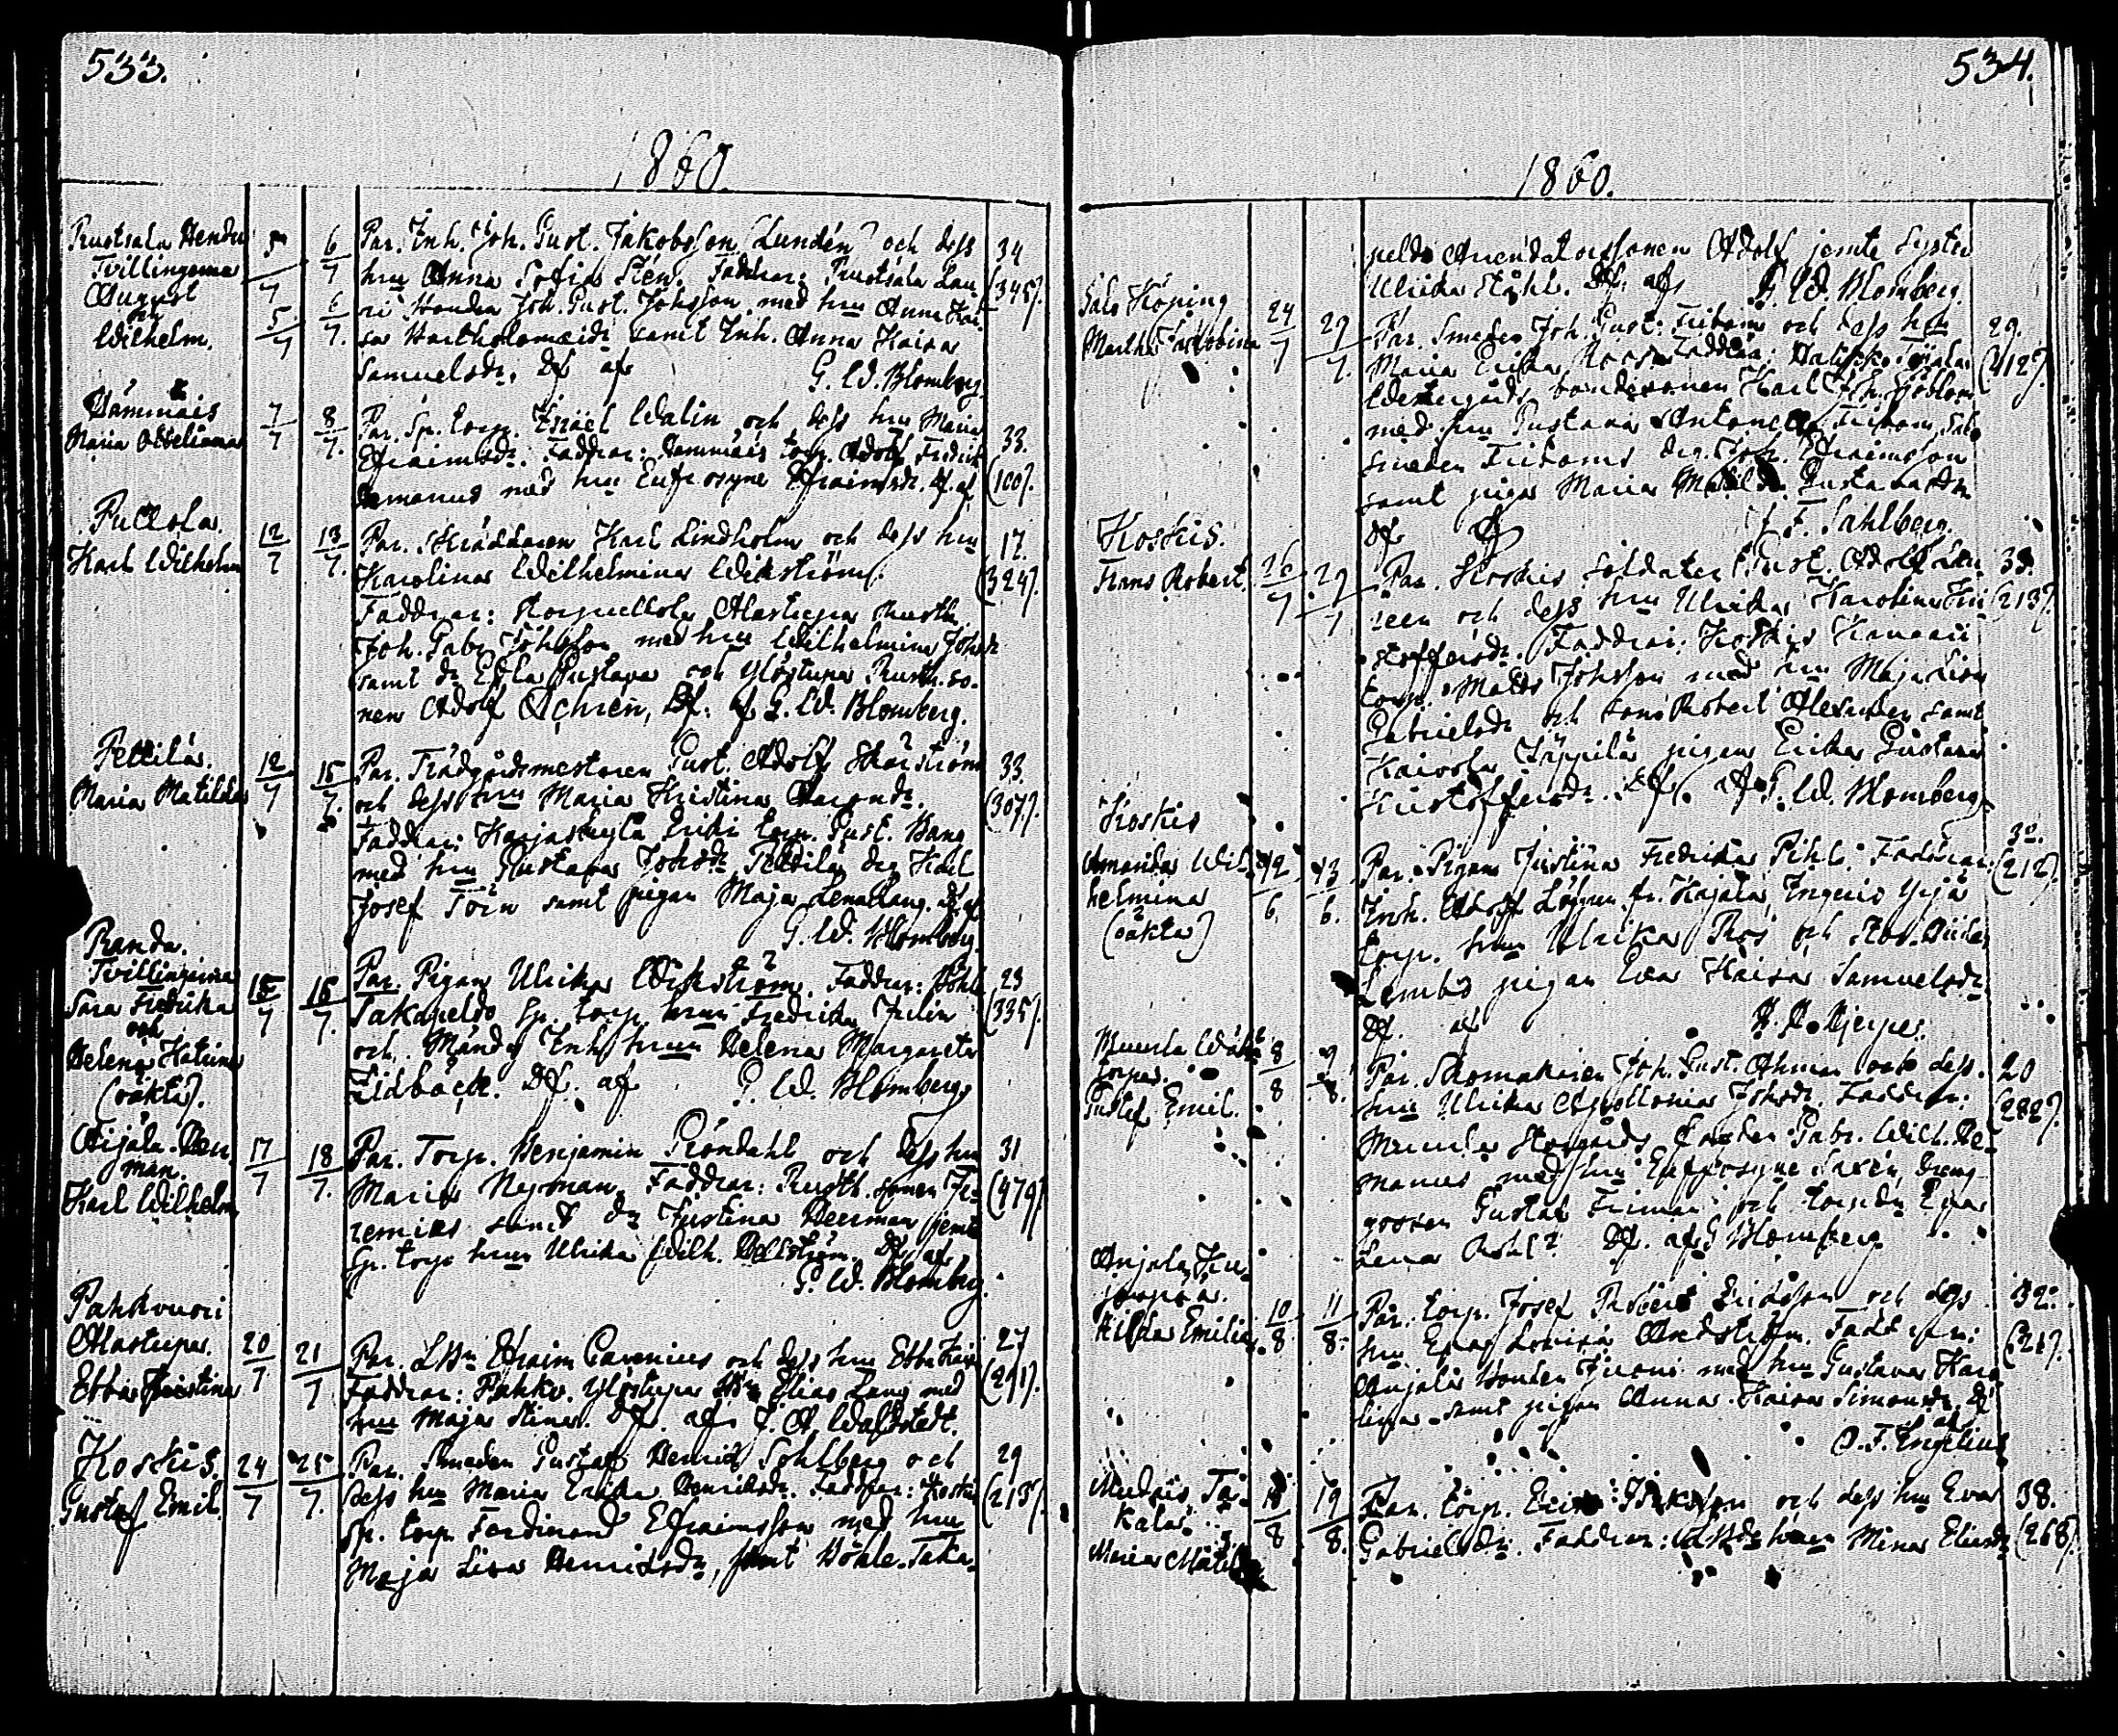 533.
1860.
Ruotsala Hendu
Tvillingarne
August
och
Wilhelm.
5/7 6/7
5/7 6/7.
Par. Inh. Joh. Gust. Jakobsson Lundén och dess
hru Anna Sofia Stén. Faddrar: Ruotsala Lau-
ri bonden Joh. Gust. Johsson med hru Anna Kai-
sa Bartholomeidr samt Inh. Anna Kaisa
Samuelsdr. Df. af
G. W. Blomberg.
34
(345).
Hämmäis
Maria Otteliana
7/7 8/7.
Par. Sp. torp. Israel Walin och dess hru Maria
Efraimsdr. Faddrar: Hämmäis torp. Adolf Fredrik
med hru Eufrosyne Efraimsdr. Df. af
33.
(100).
Pullola.
Karl Wilhelm
12/7 13/7.
Par. Skräddaren Karl Lindholm och dess hru
Karolina Wilhelmina Wikström.
Faddrar: Alastupa rusth.
Joh. Gabr. Johsson med hru Wilhelmina Johsdr
samt dr Edla Gustava och Ylöstupa Rusth. so-
nen Adolf Achrén, Df. af G. W. Blomberg.
17.
(324).
Pettilä.
Maria Matilda
12/7 15/7.
Par. Trädgårdsmestaren Gust. Adolf Skärström
och dess hru Maria Kristina Aaronsdr.
Faddrar: Karjaskylä Eriki torp. Gust. Bang
med hru Gustava Johsdr Pettilä drg Karl
Josef Törn samt pigan Maja Lena Lang. Df. af
G. W. Blomberg.
33.
(307).
Randa.
Tvillingarne
Sara Fredrika
och
Helena Katrina
(oäkta).
15/7 16/7.
Par. Pigan Ulrika Wikström. Faddrar: Höhle
Takapeldo Sp. torp. hrun Fredrika Julin
och Mända Inh. hrun Helena Margareta
Lidbäck. Df. af G. W. Blomberg
23
(335).
Äijälä Her-
man.
Karl Wilhelm
17/7 18/7.
Par. Torp. Benjamin Gröndahl och dess hru
Maria Nyman. Faddrar: Rusth. sonen Je-
remias samt dr Justina Herman jemte
Sp. torp. hrun Ulrika Wilh. Hellström. Df. af
G. W. Blomberg.
31
(479)
Pahkvuori
Alastupa.
Ebba Kristina
20/7 21/7
Par. LBn Efraim Grenius och dess hru Ebba Kaisa
Faddrar: Pahkv. Ylöstupa LBn Elias Lang med
hru Maja Stina. Df. af J. A. Wallstedt.
27
(291).
Koskis.
Gustaf Emil.
24/7 25/7.
Par. Smeden Gustaf Henrik Sohlberg och
dess hru Maria Erika Henriksdr. Faddrar: Koskis
Sp. torp. Ferdinand Efraimsson med hru
Maja Lisa Henriksdr, samt Höhle Taka-
29
(213).
534.
1860.
peldo Arrendatorssonen Adolf jemte Syster
Ulrika Ståhl. Df. af G. W. Blomberg.
Salo Köping
Martha Jakobina
24/7 29/7.
Par. Smeden Joh. Gust. Fribom och dess hru
Maria Erika Roos. Faddrar: Halikko
Westergårds bondesonen Karl Joh. Sjöblom
med hru Gustava Antonetta Fribom, Salo
smeden Friboms drg. Joh. Efraimsson
samt pigan Maria Matilda Gustavasdr
Df. af J. F. Sahlberg.
29.
(412).
Koskis.
Frans Robert.
26/7 29/7
Par. Koskis soldaten Gust. Adolf Lau-
reen och dess hru Ulrika Karolina Kri-
stoffersdr. Faddrar: Koskis
torp. Matts Johsson med hru Maja Lisa
Gabrielsdr och sons Robert Alexander samt
Kaivola Täppilä pigan Erika Gustava
Kristoffersdr. Df. af G. W. Blomberg.
38.
(213).
Koskis
Amanda Wil-
helmina
(oäkta)
12/6 13/6.
Par. Pigan Justina Fredrika Pihl. Faddrar:
Inh. Adolf Löfgren fr. Kajala, Ingeris Yrjä
torp. hrun Ulrika Roos och Stor Hiida
Lembo pigan Eva Kaisa Samuelsdr
Df. af H. H. Hjerpe.
30.
(212).
Muurla Wäh-
Gustaf Emil.
8/8 9/8.
Par. Skomakaren Joh. Gust. Ahman och dess
hru Ulrika Apollonia Johsdr. Faddrar:
Muurla Storgårds Gabr. Wilh. He-
manus med hru Euffrosyne Saxén, dreng-
gossen Gustaf Friman och torpdr Eva
Lena Df. af G Blomberg
20
(282).
Anjala
Hilda Emilia
10/8 11/8.
Par. torp. Josef Robert Eriksson och dess
hru Eva Lovisa Andström. Faddrar:
Anjala bonden Juoni med hru Gustava Karo-
lina samt pigan Anna Kaisa Simonsdr. Df.
af
O. F. Engelius
32.
(21).
Mudais Ta-
kala.
Maria Matil
18/8 19/8.
Par. torp. Erik Isaksson och dess hru Eva
Gabrielsdr. Faddrar: hrun Mina Eliedr
38.
(268).